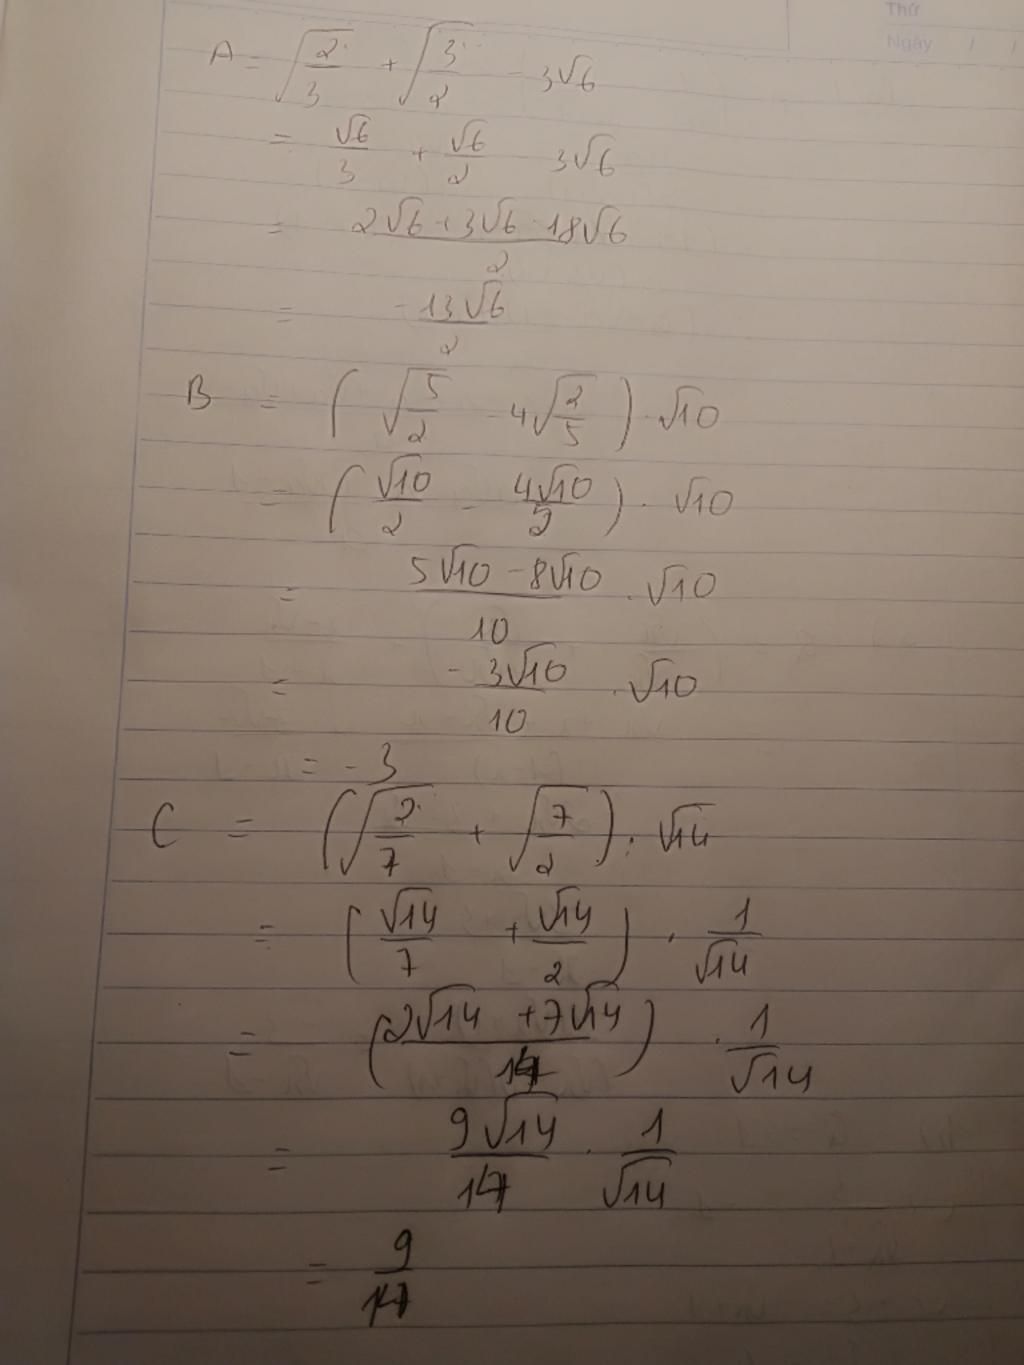 Thứ
Ngày / /
A = √(2/3) + √(3/2) - 3√6
= √6/3 + √6/2 3√6
= (2√6 + 3√6 - 18√6)/2
= -13√6/2
B = (√(5/2) - 4√(2/5)) · √10
= (√10/2 - 4√10/5) · √10
= (5√10 - 8√10)/10 · √10
= -3√10/10 · √10
= -3
C = (√(2/7) + √(7/2)) : √14
= (√14/7 + √14/2) · 1/√14
= ((2√14 + 7√14)/14) · 1/√14
= 9√14/14 · 1/√14
= 9/14